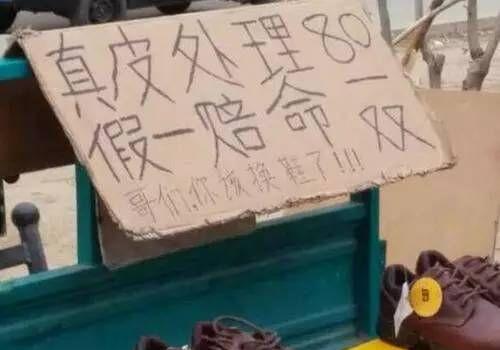 真皮处理80一双
假一赔命
哥们,你该换鞋了!!!